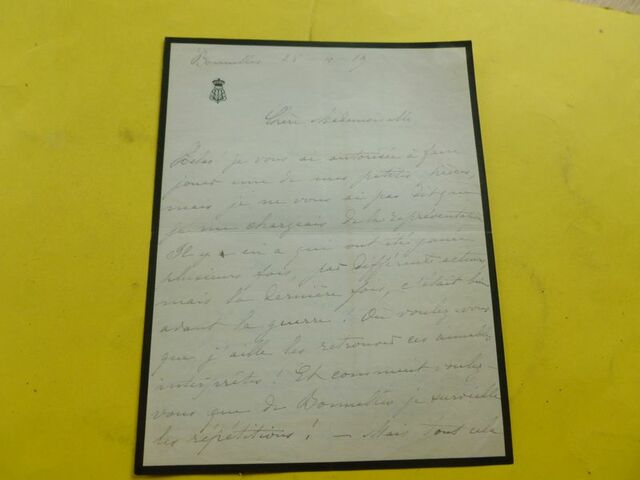 Bonnelles 28 - 4 - 19
Chère Mademoiselle
Hélas! je vous ai autorisée à faire
jouer une de mes petites pièces
mais je ne vous ai pas dit que
je me chargeais de la représentation
Il y en a qui ont été jouées
plusieurs fois, par différents acteurs
mais la dernière fois, c'était bien
avant la guerre! Où voulez-vous
que j'aille les retrouver ces aimables
interprètes! Et comment voulez-
vous que de Bonnelles je surveille
les répétitions! — Mais tout cela